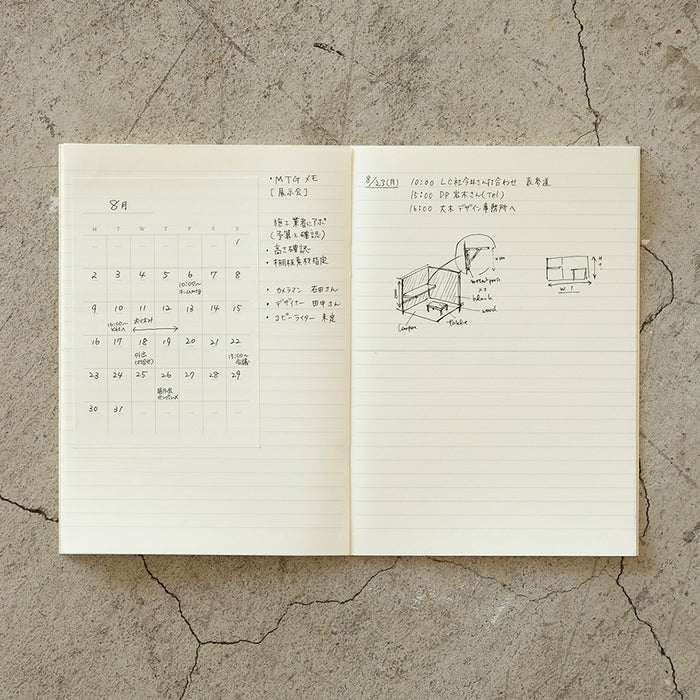 8月
M T W T F S S
1
2 3 4 5 6 7 8
10:00〜
9 10 11 12 13 14 15
15:00〜
16 17 18 19 20 21 22
外出
13:00〜
会議
23 24 25 26 27 28 29
30 31
・MTG メモ
[展示会]
施工業者にアポ
(予算と確認)
・高さ確認
・棚板素材指定
・カメラマン 石田さん
・デザイナー 田中さん
・コピーライター 未定
8/23(月) 10:00 LC社今井さん打合わせ 表参道
15:00 DP 岩木さん(Tel)
16:00 大木デザイン事務所へ
black
wood
table
W
H